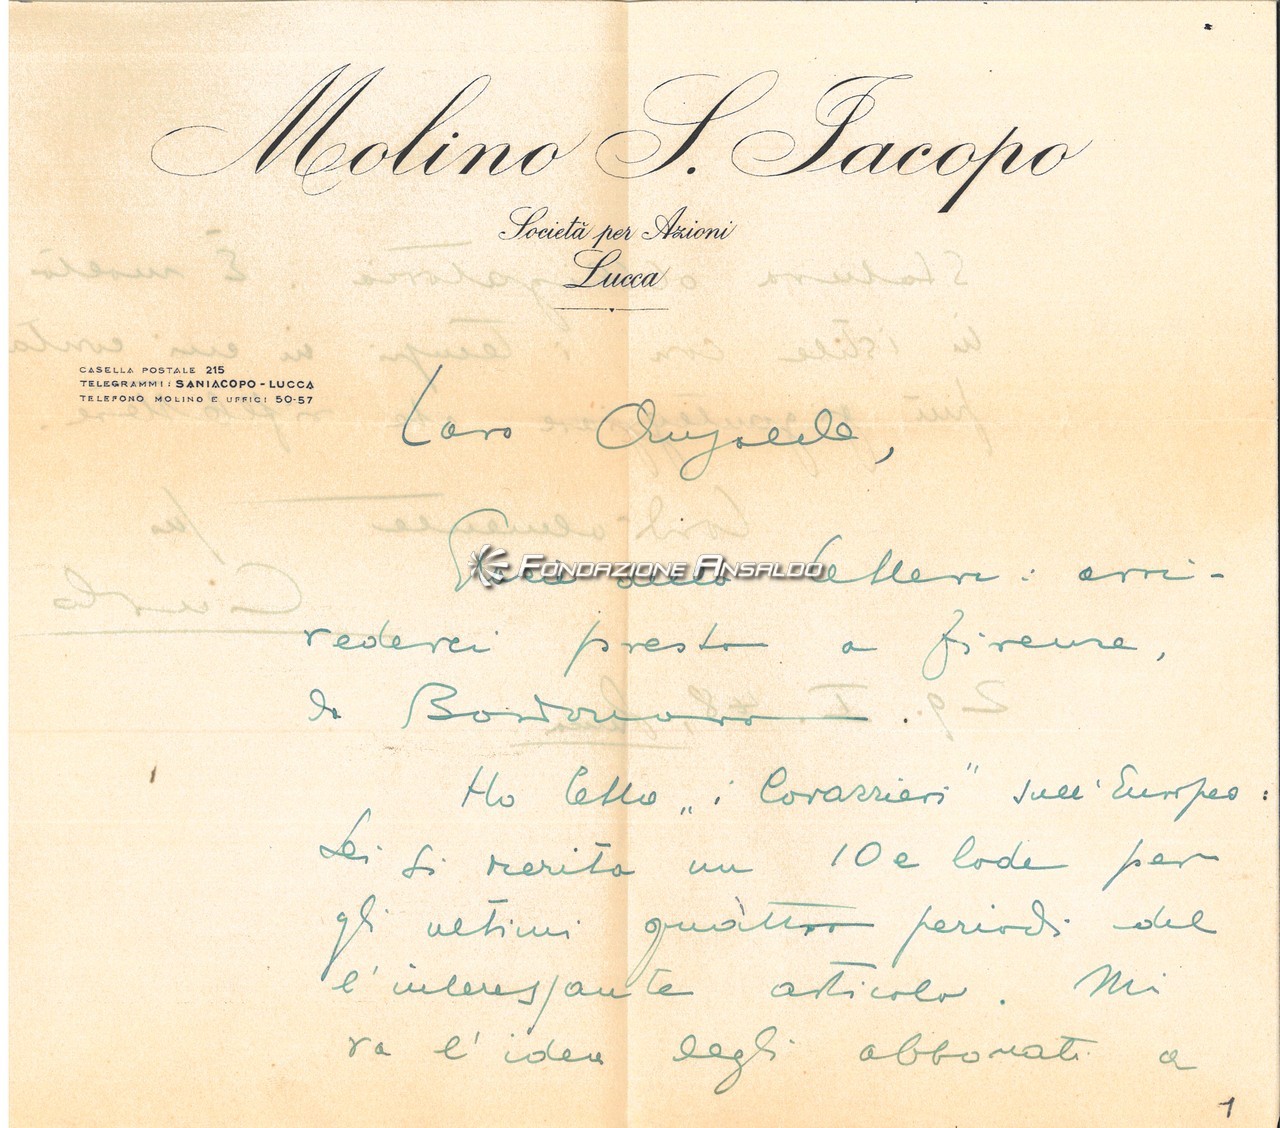 Molino S. Iacopo
Società per Azioni
Lucca
CASELLA POSTALE 215
TELEGRAMMI: SANIACOPO - LUCCA
TELEFONO MOLINO E UFFICI 50-57
Caro Ansaldo,
FONDAZIONE ANSALDO
lettera: arri-
vederci presto a Firenze,
da Bordonaro.
Ho letto "i Corazzieri" sull'Europeo:
Lei si merita un 10 e lode per
gli ultimi quattro periodi del
l'interessante articolo. Mi
va l'idea degli abbonati a
1